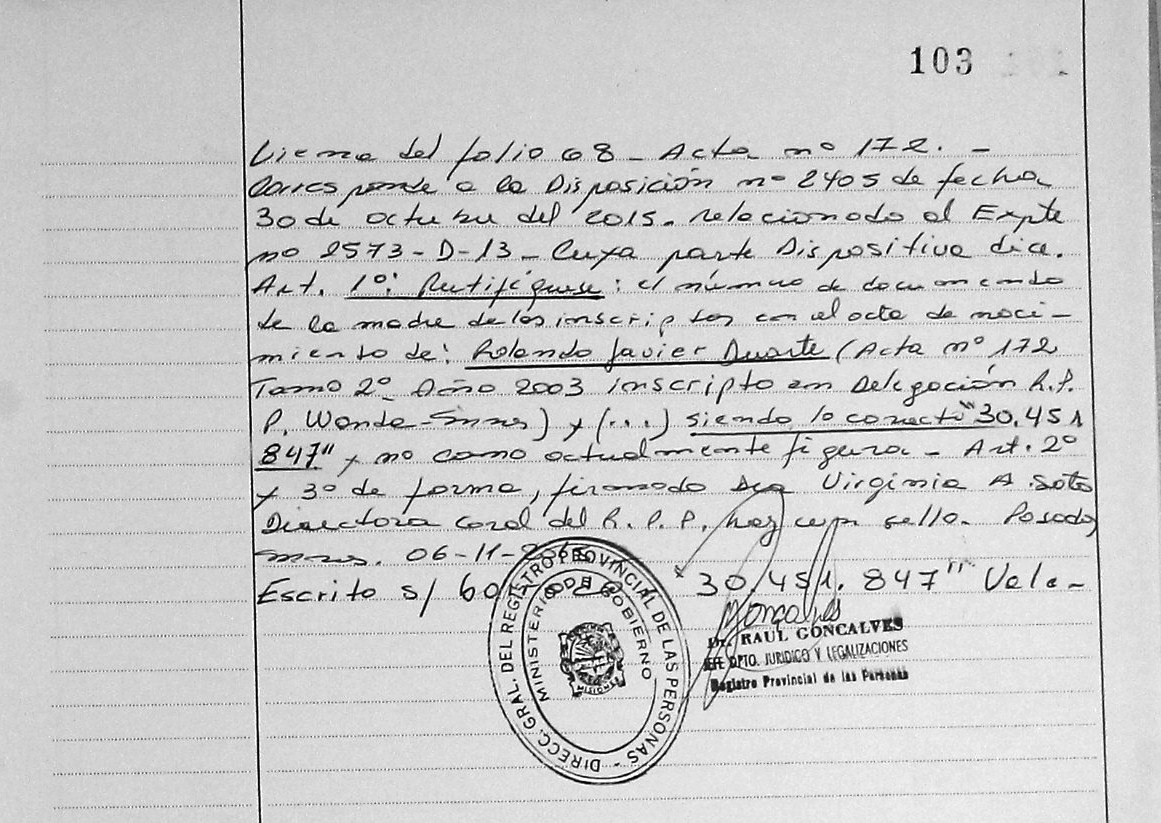 103
Viene del folio 68 - Acta nº 172. -
Corresponde a la Disposición nº 2405 de fecha
30 de octubre del 2015. relacionado al Expte
nº 2573-D-13 - Cuya parte Dispositiva dice.
Art. 1º: Rectifíquese: el número de documento
de la madre de los inscriptos en el acta de naci-
miento de: Rolando Javier Duarte (Acta nº 172
Tomo 2º Año 2003 inscripto en Delegación R.P.
P. Wanda-Mnes) y (...) siendo lo correcto "30.451
847" y no como actualmente figura - Art. 2º
y 3º de forma, firmado Virginia A. Soto
Directora Gral del R.P.P. hay un sello. Posadas
Mnes. 06-11-2015
Escrito s/ 30.451.847" Vale-
Gonçalves
Dr. RAUL GONCALVES
JEFE DPTO. JURIDICO Y LEGALIZACIONES
Registro Provincial de las Personas
DIRECC. GRAL. DEL REGISTRO PROVINCIAL DE LAS PERSONAS -
MINISTERIO DE GOBIERNO
MISIONES